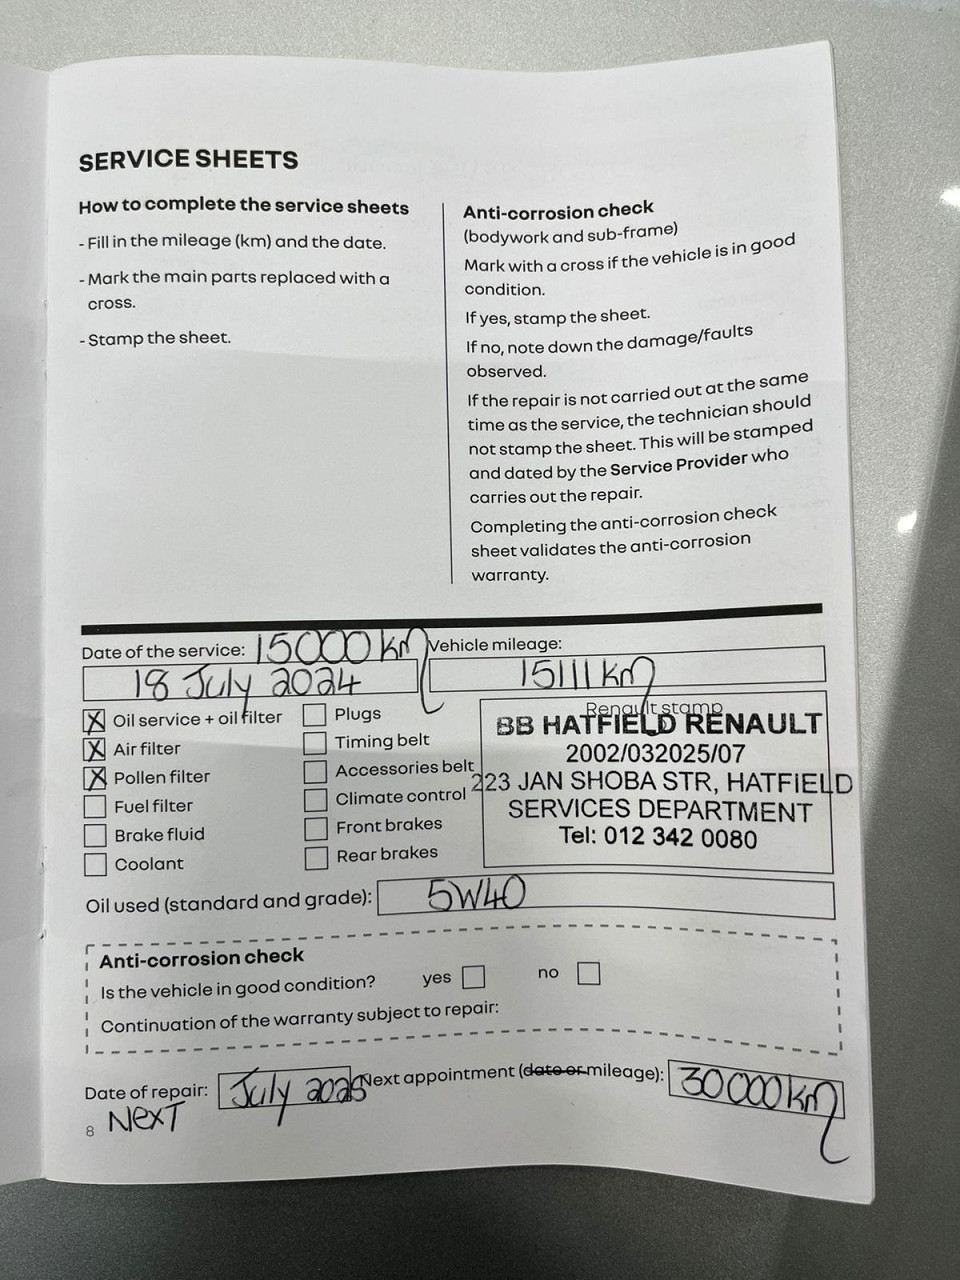 SERVICE SHEETS
How to complete the service sheets
- Fill in the mileage (km) and the date.
- Mark the main parts replaced with a
cross.
- Stamp the sheet.
Anti-corrosion check
(bodywork and sub-frame)
Mark with a cross if the vehicle is in good
condition.
If yes, stamp the sheet.
If no, note down the damage/faults
observed.
If the repair is not carried out at the same
time as the service, the technician should
not stamp the sheet. This will be stamped
and dated by the Service Provider who
carries out the repair.
Completing the anti-corrosion check
sheet validates the anti-corrosion
warranty.
Date of the service: 15000 km
18 July 2024
Vehicle mileage:
15111 km
Oil service + oil filter
Air filter
Pollen filter
Fuel filter
Brake fluid
Coolant
Plugs
Timing belt
Accessories belt
Climate control
Front brakes
Rear brakes
Renault stamp
BB HATFIELD RENAULT
2002/032025/07
223 JAN SHOBA STR, HATFIELD
SERVICES DEPARTMENT
Tel: 012 342 0080
Oil used (standard and grade): 5W40
Anti-corrosion check
Is the vehicle in good condition? yes no
Continuation of the warranty subject to repair:
Date of repair: July 2025 Next appointment (date or mileage): 30000 km
8 Next